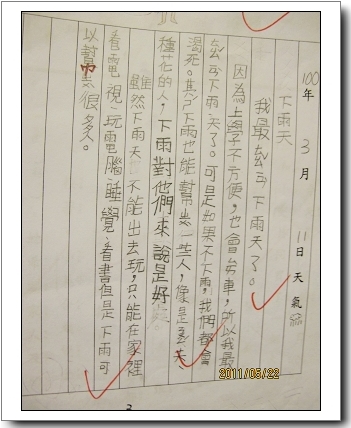 100年 3月 11日 天氣
下雨天
我最下雨天了。
因為上學不方便，也會車，所以我最
下雨天了。可是如果不下雨，我們都會
渴死。其下雨也能幫一些人，像是夫、
種花的人，下雨對他們來說是好
雖然下雨天不能出去玩，只能在家裡
看電視、玩電腦、睡覺、看書但是下雨可
以幫很多。
2011/05/22